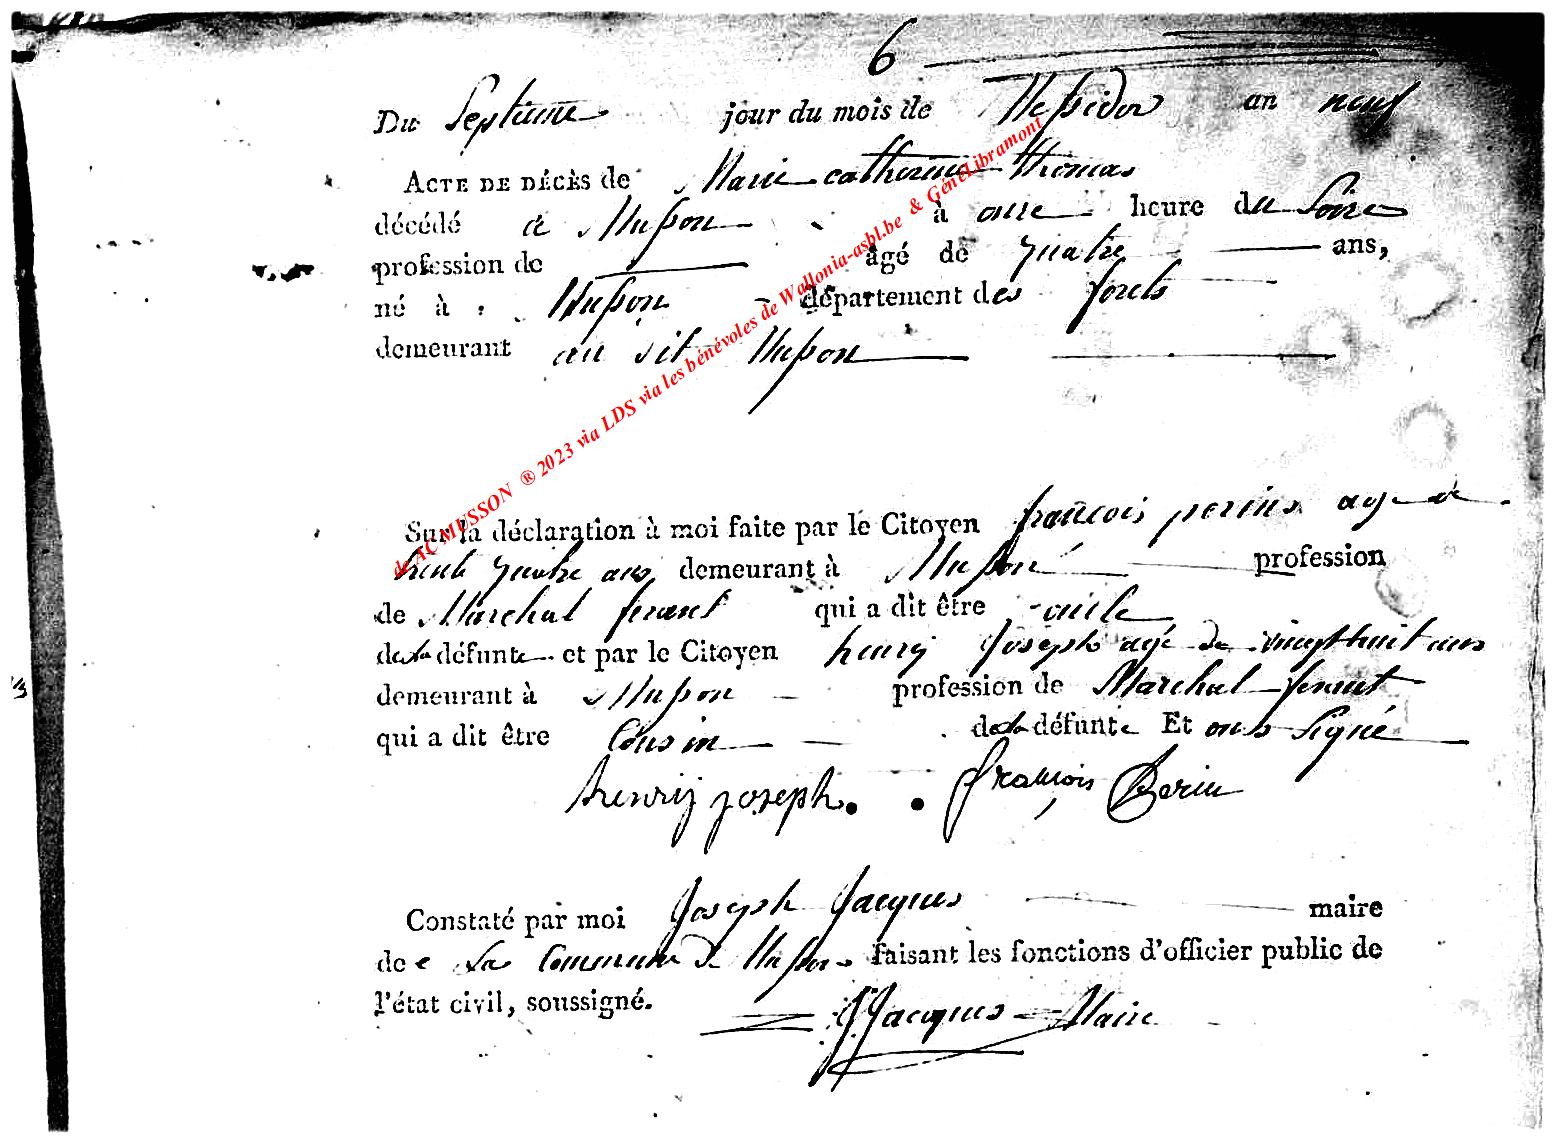 6
Du Septieme jour du mois de Messidor an neuf
ACTE DE DÉCÈS de Marie catherine thomas
décédé à Musson à onze heure du Soire
profession de âgé de quatre ans,
né à Musson département des forets
demeurant au dit Musson
de AC MUSSON ® 2023 via LDS via les bénévoles de Wallonia-asbl.be & GénéLibramont
Sur la déclaration à moi faite par le Citoyen françois perin agé de
trente quatre ans demeurant à Musson profession
de Marchal ferant qui a dit être oncle
de la défunte et par le Citoyen henry Joseph agé de vingthuit ans
demeurant à Musson profession de Marchal ferant
qui a dit être Cousin de la défunte Et ont Signé
henrij joseph françois Perin
Constaté par moi Joseph Jacques maire
de La Commune de Musson faisant les fonctions d'officier public de
l'état civil, soussigné.
J Jacques Maire